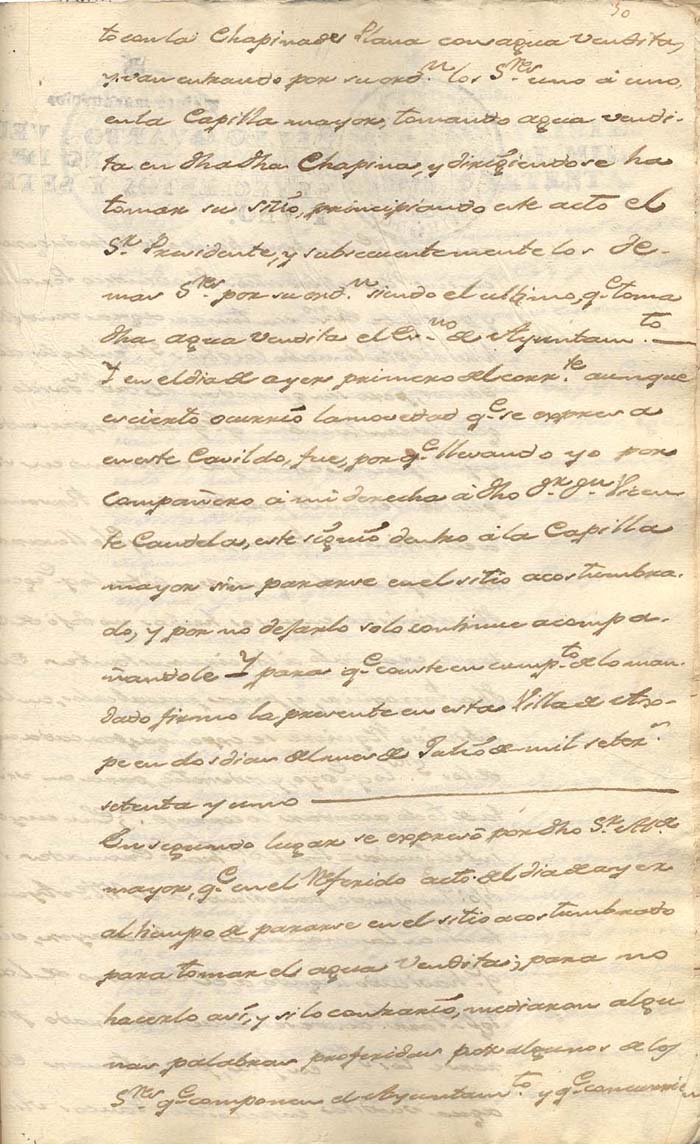 30
to con la Chapina de Plana con agua vendita,
y van entrando por su ord.n los S.res uno á uno,
en la Capilla mayor, tomando agua vendi-
ta en dha dha Chapina, y dirigiendose ha
tomar su sitio, principiando este acto el
S.r Presidente, y subsecuentemente los De-
mas S.res por su ord.n siendo el ultimo, q.e toma
dha agua vendita el Es.no de Ayuntam.to
Y en el dia de ayer primero del corr.te aunque
es cierto ocurrió la novedad q.e se expresa
en este Cavildo, fue, por q.e llevando yo por
Compañero á mi derecha á dho S.r D.n Vicen
te Candela, este siguió dentro á la Capilla
mayor sin pararse en el sitio acostumbra-
do, y por no dejarlo solo continue acompa-
ñandole Y para q.e conste en cump.to de lo man-
dado firmo la presente en esta Villa de As-
pe en dos dias del mes de Julio de mil setez.s
setenta y uno
En segundo lugar se expresó por dho S.r Al.e
mayor, q.e en el Referido acto del dia de ayer
al tiempo de pararse en el sitio acostumbrado
para tomar el agua vendita; para no
hacerlo así, y si lo contrario, mediaron algu
nas palabras proferidas por algunos de los
S.res q.e componen el Ayuntam.to y q.e concurrie